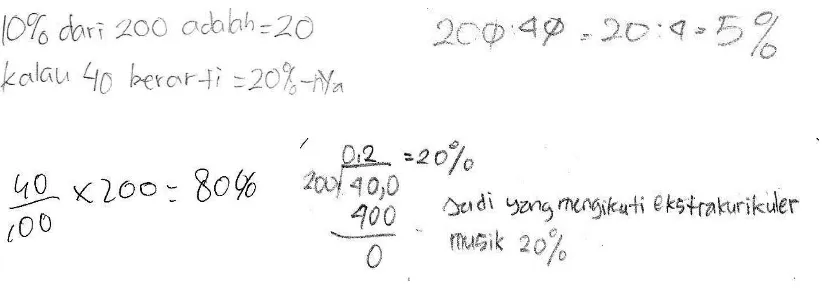 10% dari 200 adalah = 20
kalau 40 berarti = 20%-nya
200 : 40 = 20 : 4 = 5%
40/100 × 200 = 80%
0.2 = 20%
200 40,0
400
0
Jadi yang mengikuti ekstrakurikuler
musik 20%